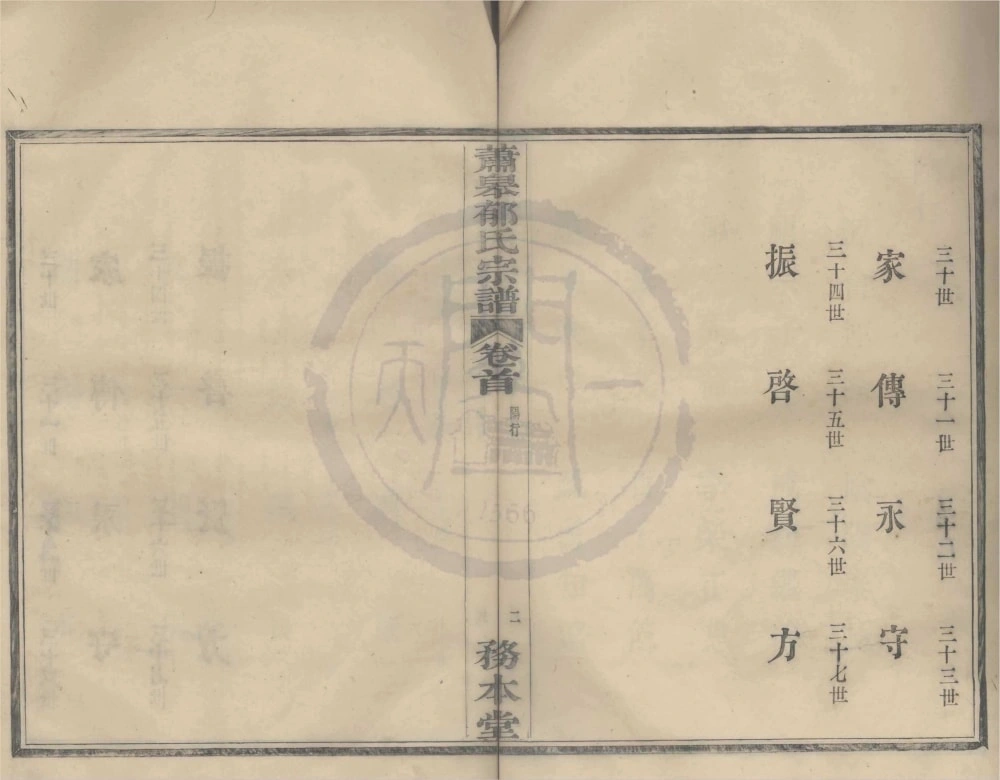 三十世 三十一世 三十二世 三十三世
家 傳 永 守
三十四世 三十五世 三十六世 三十七世
振 啓 賢 方
蕭皋郁氏宗譜 卷首 二 務本堂
天一閣
1566